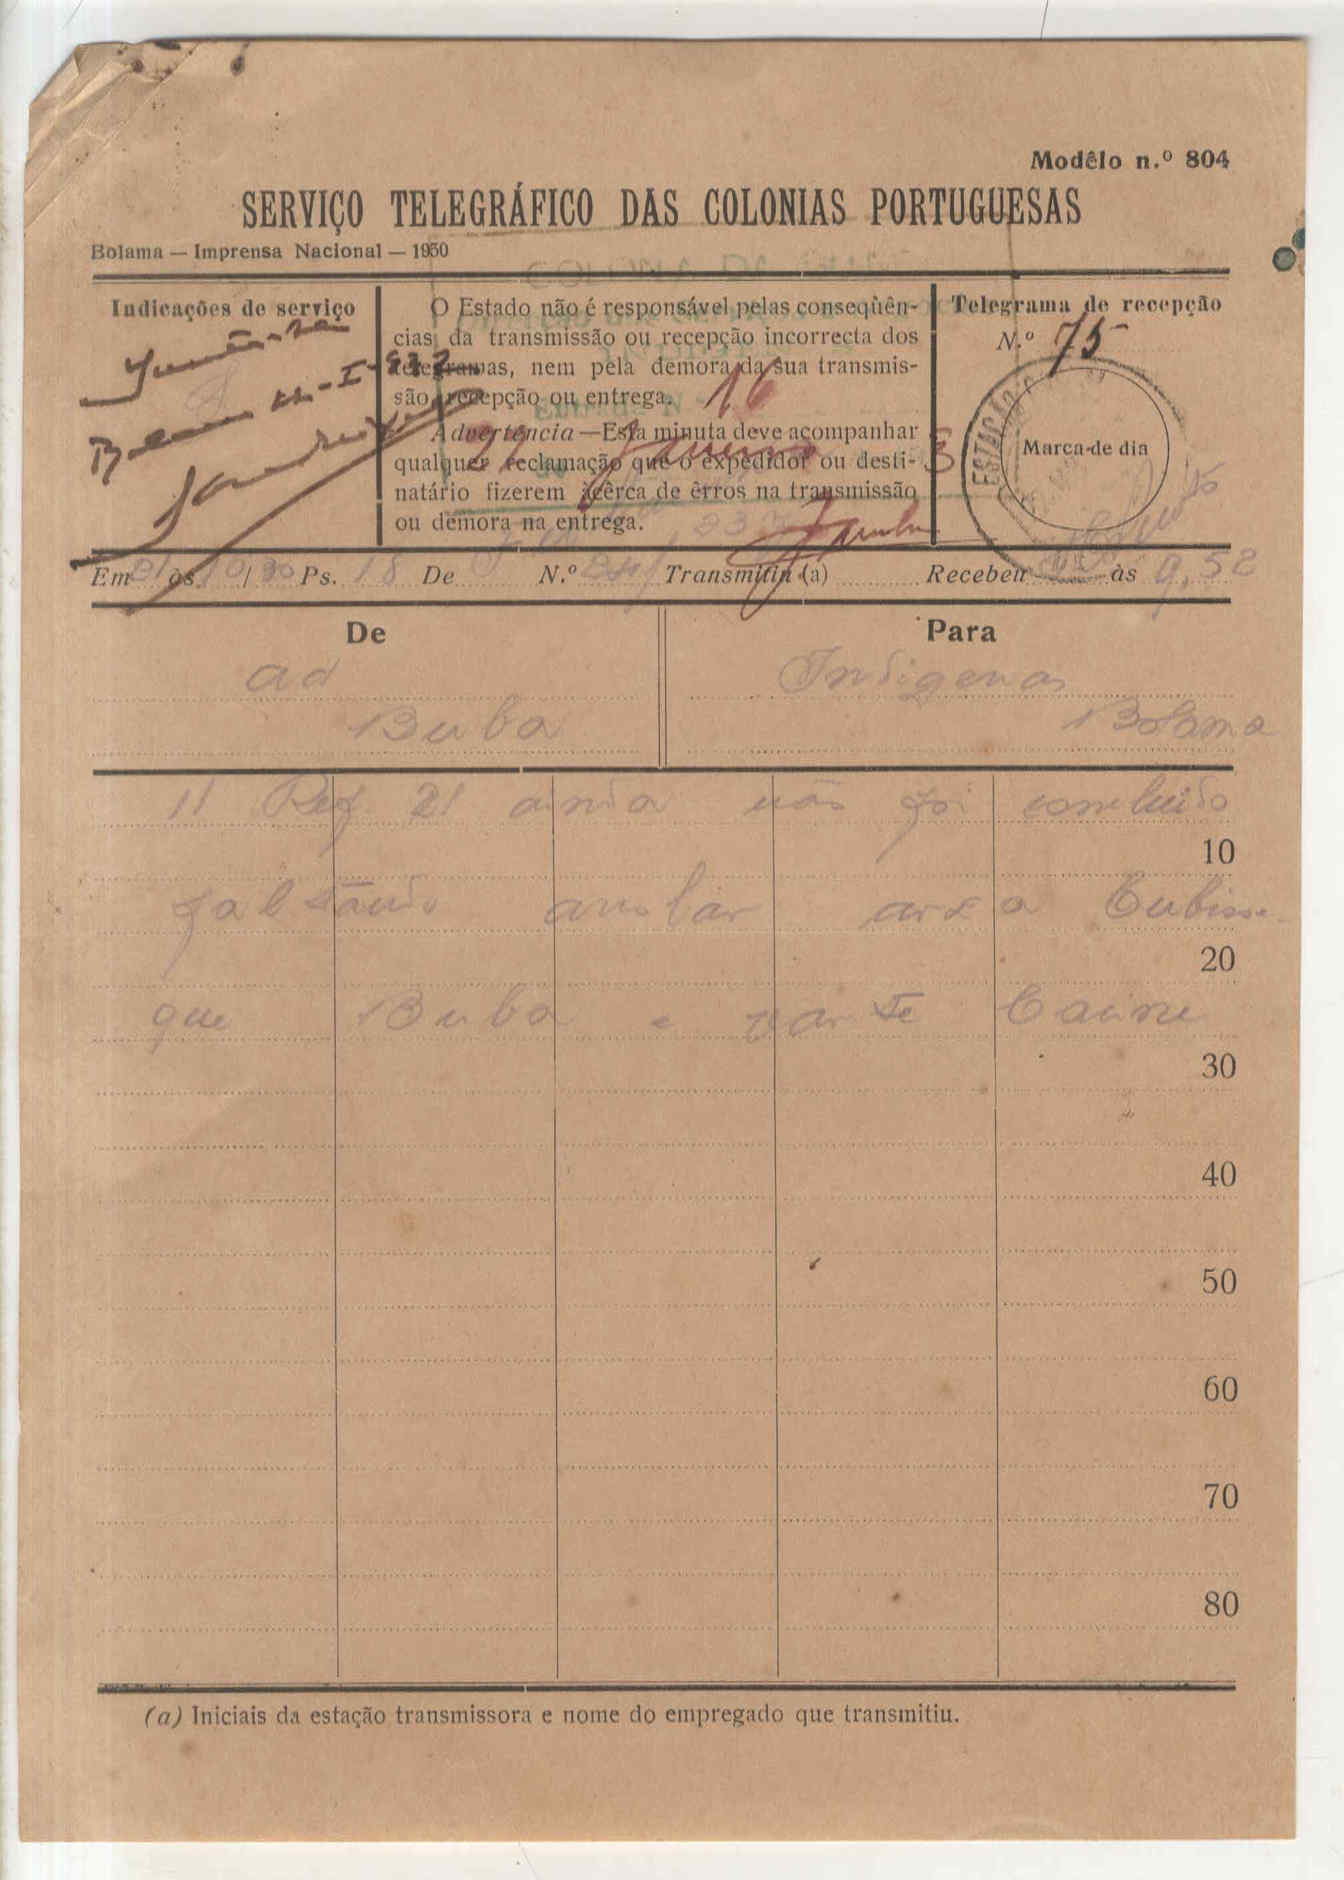 Modêlo n.º 804
SERVIÇO TELEGRÁFICO DAS COLONIAS PORTUGUESAS
Bolama — Imprensa Nacional — 1930
Indicações de serviço
O Estado não é responsável pelas conseqùên-
cias da transmissão ou recepção incorrecta dos
telegramas, nem pela demora da sua transmis-
são, recepção ou entrega.
16
Advertencia—Esta minuta deve acompanhar
qualquer reclamação que o expedidor ou desti-
natário fizerem àcêrca de êrros na transmissão
ou demora na entrega.
21 Janeiro 3
Telegrama de recepção
N.º 75
ESTAÇÃO
Marca de dia
Em 21 às 10/30 Ps. 18 De N.º Transmitiu (a) Recebeu às 9,52
De
Ad
Buba
Para
Indigenas
Bolama
11 Ref 21 ainda não foi concluido
10
faltando area
20
que Buba e parte
30
40
50
60
70
80
(a) Iniciais da estação transmissora e nome do empregado que transmitiu.